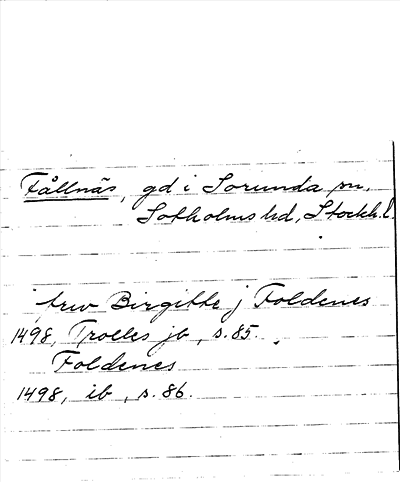 Fållnäs, gd i Sorunda sn,
Sotholms hd, Stockh. l.
frw Birgitte j Foldenes
1498, Trolles jb, s. 85.
Foldenes
1498, ib, s. 86.